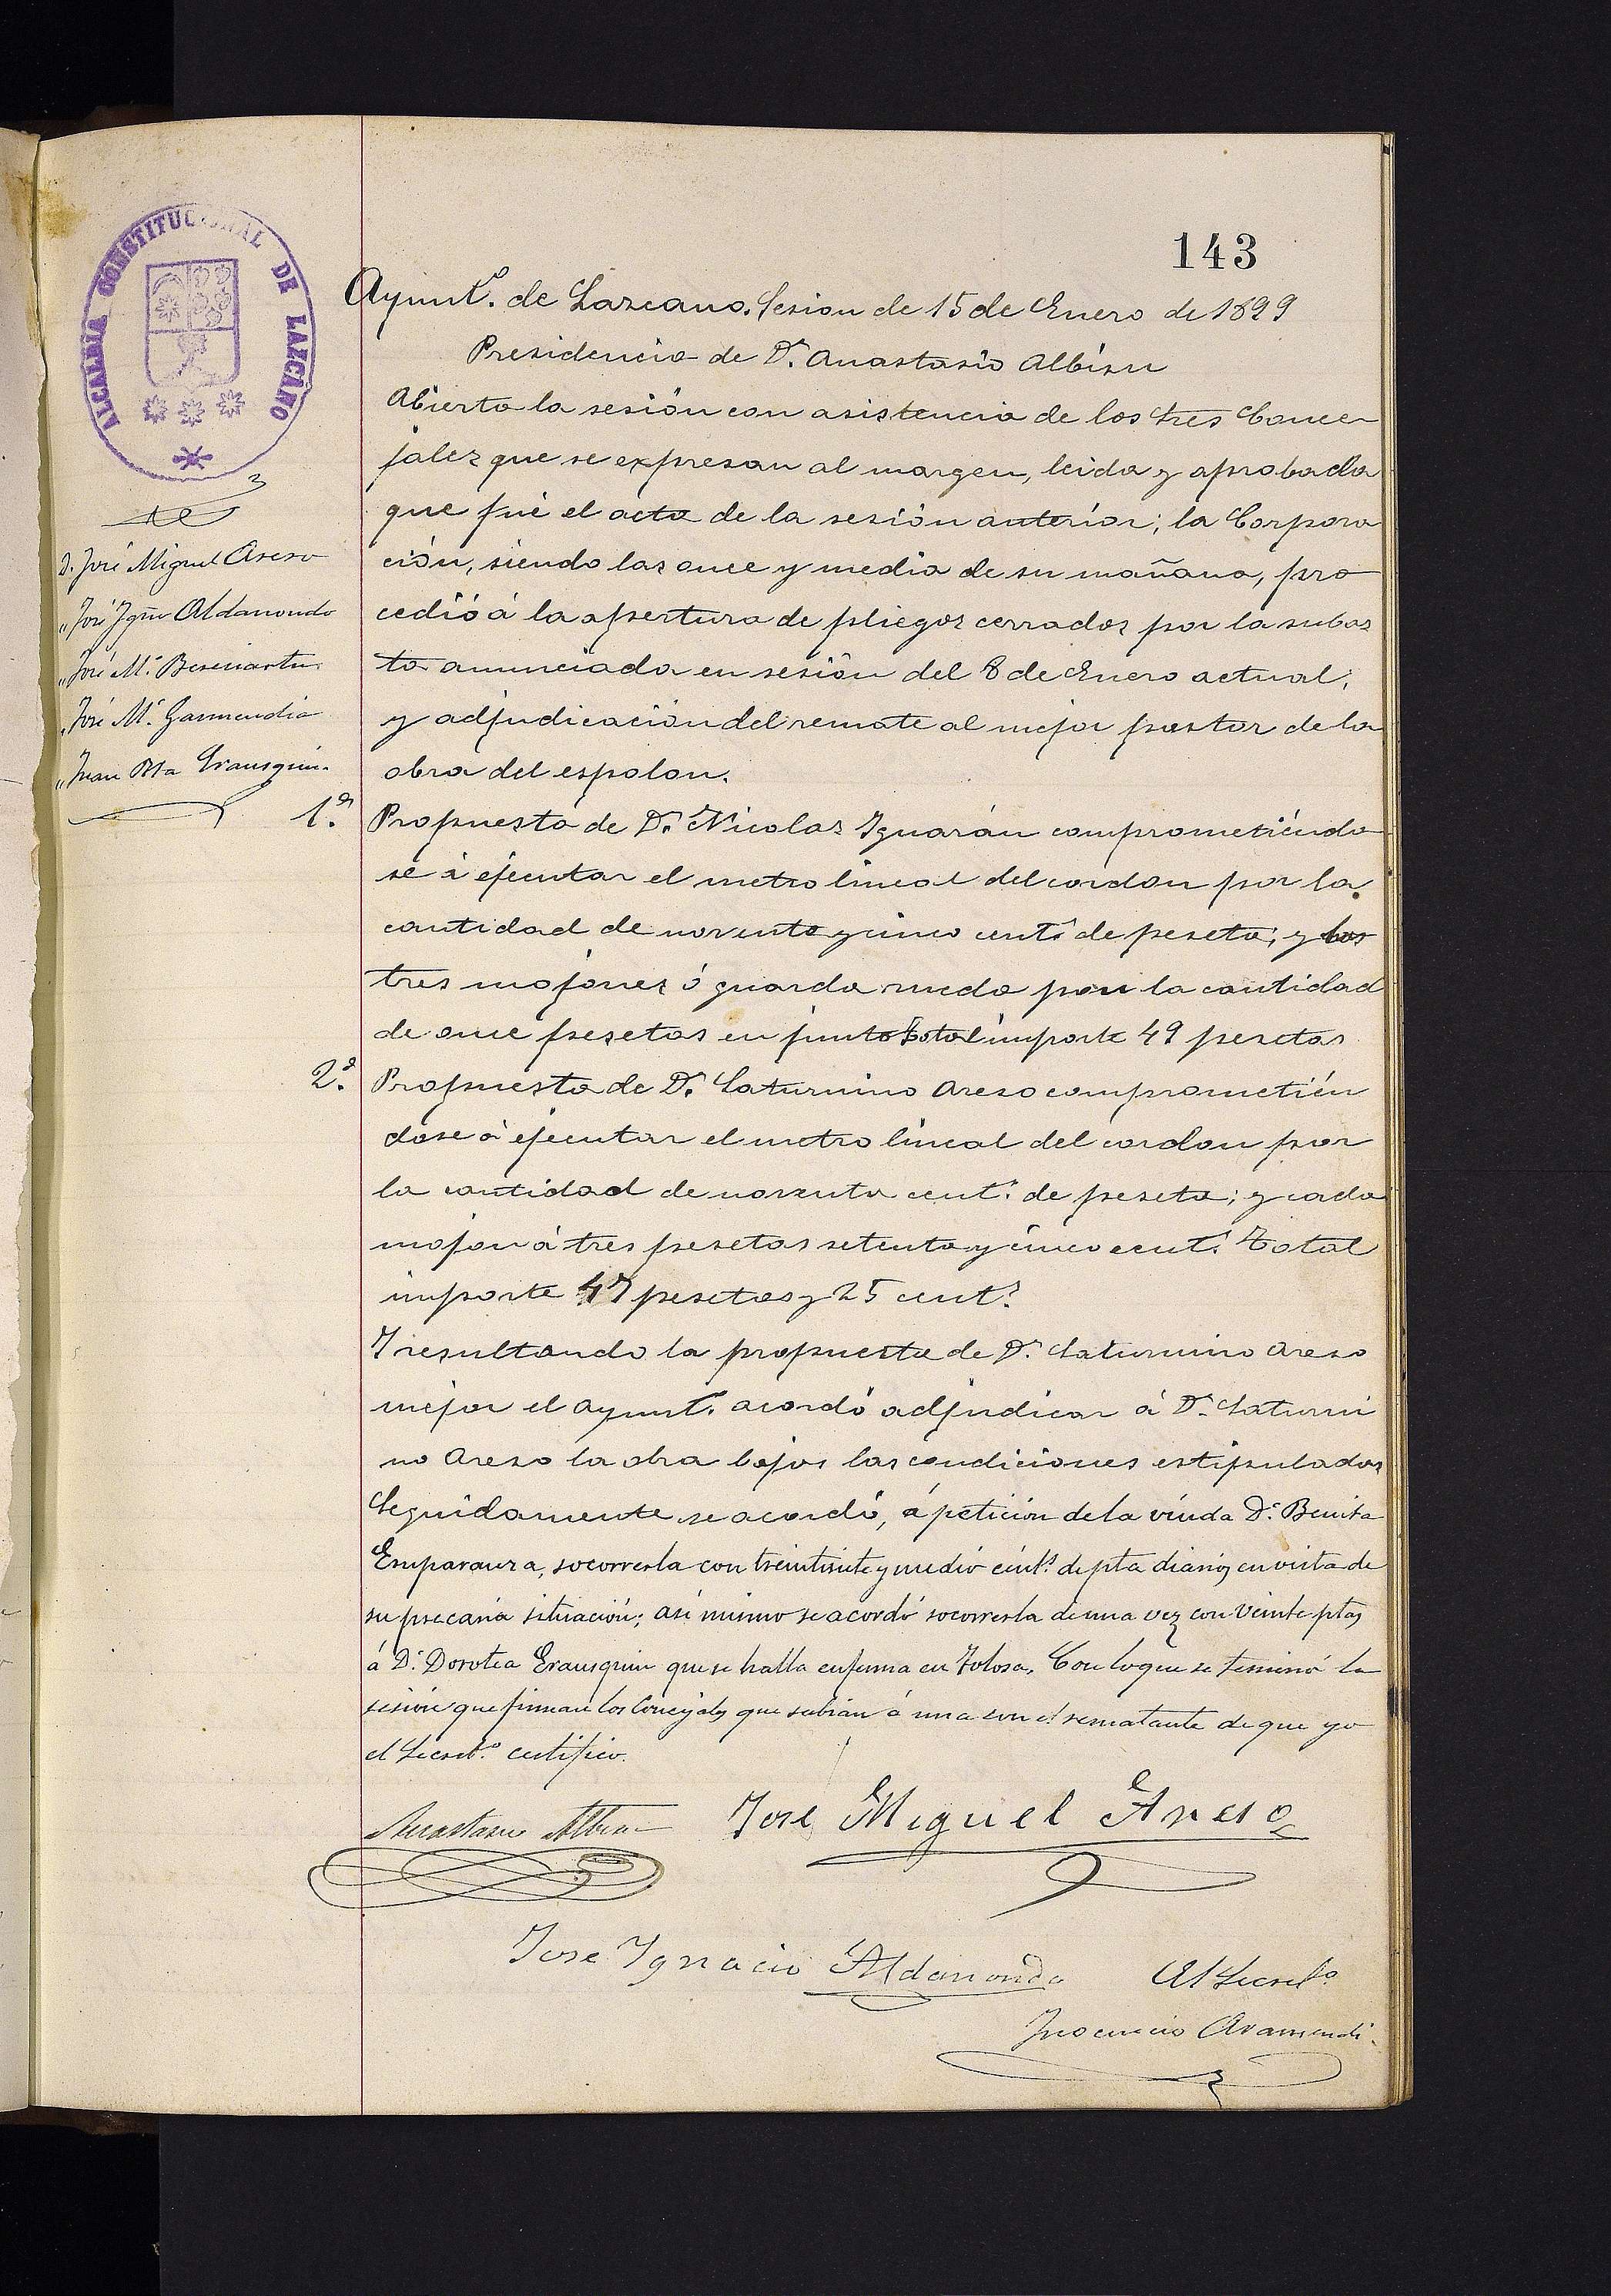 143
ALCALDIA CONSTITUCIONAL DE LAZCANO
Ayunt.º de Lazcano. Sesion de 15 de Enero de 1899
Presidencia de D.n Anastasio Albisu
D. José Miguel Areso
" José Ign.º Aldanondo
" José M.ª
" José M.ª Garmendia
" Juan Bta Erausquin.
Abierta la sesión con asistencia de los tres Conce
jales que se expresan al margen, leida y aprobada
que fué el acta de la sesión anterior; la Corpora
ción, siendo las once y media de su mañana, pro
cedió á la apertura de pliegos cerrados por la subas
ta anunciada en sesión del 8 de Enero actual,
y adjudicación del remate al mejor postor de la
obra del espolon.
1.ª Propuesta de D.n Nicolas Iguarán comprometiendo
se á ejecutar el metro lineal del cordon por la
cantidad de noventa y cinco cent.s de peseta; y los
tres mojones ó guarda rueda por la cantidad
de once pesetas en junto total importe 49 pesetas
2.ª Propuesta de D.n Saturnino Areso comprometién
dose á ejecutar el metro lineal del cordon por
la cantidad de noventa cent.s de peseta; y cada
mojon á tres pesetas setenta y cinco cent.s Total
importe 47 pesetas y 25 cent.s
Y resultando la propuesta de D.n Saturnino Areso
mejor el Ayunt.º acordó adjudicar á D.n Saturni
no Areso la obra bajos las condiciones estipuladas
Seguidamente se acordó, á petición de la viuda D.ª Benita
Emparanza, socorrerla con treintisiete y medio cént.s de pta diarios en vista de
su precaria situación; asi mismo se acordó socorrerla de una vez con veinte ptas
á D.ª Dorotea Erausquin que se halla enferma en Tolosa. Con lo que se terminó la
sesión que firman los Concejales que sabian á una con el rematante de que yo
el Secret.º certifico.
Anastasio Albisu
José Miguel Areso
Jose Ignacio Aldanondo
El Secret.º
Inocencio Aramendi